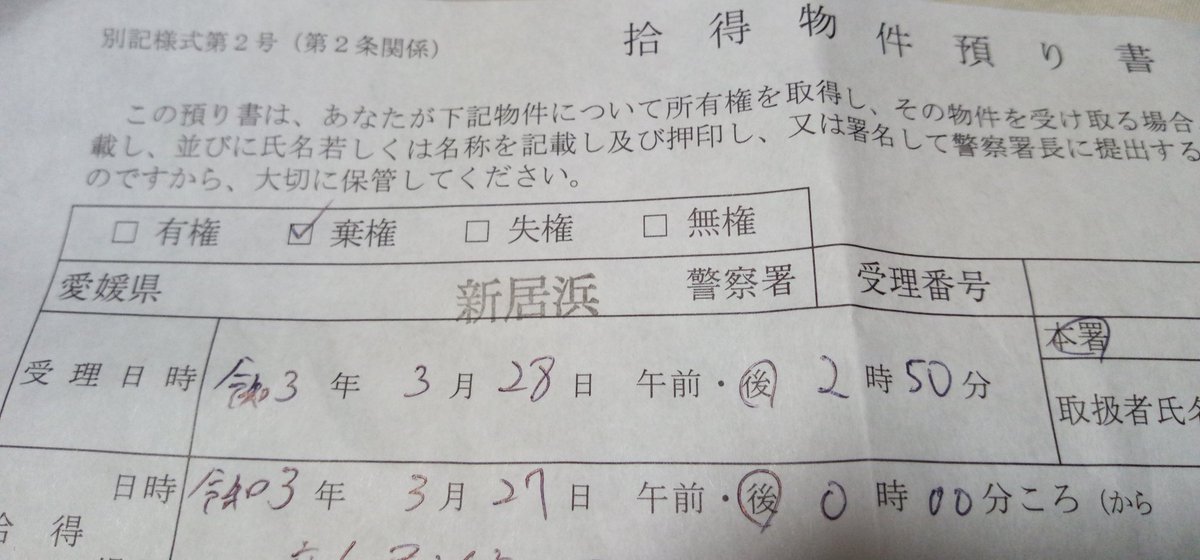 別記様式第2号（第2条関係）
拾得物件預り書
この預り書は、あなたが下記物件について所有権を取得し、その物件を受け取る場合
載し、並びに氏名若しくは名称を記載し及び押印し、又は署名して警察署長に提出する
のですから、大切に保管してください。
□ 有権 ☑ 棄権 □ 失権 □ 無権
愛媛県 新居浜 警察署 受理番号
本署
受理日時 令和3年3月28日 午前・後 2時50分
取扱者氏名
日時 令和3年3月27日 午前・後 0時00分ころ（から
拾得